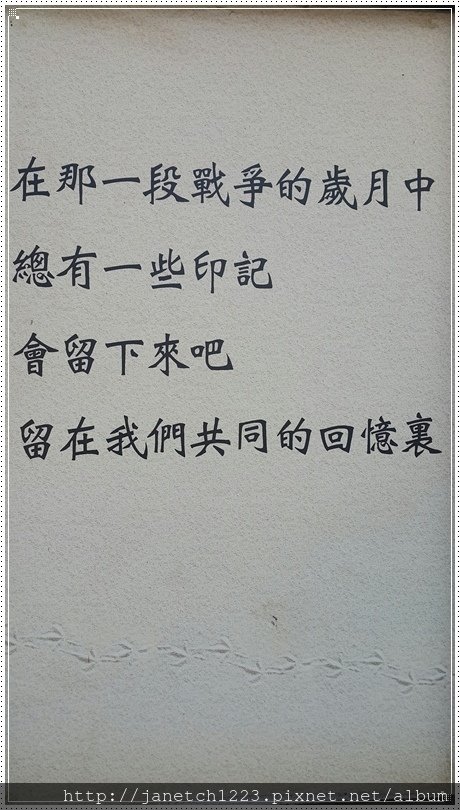 在那一段戰爭的歲月中
總有一些印記
會留下來吧
留在我們共同的回憶裏
http://janetch1223.pixnet.net/album